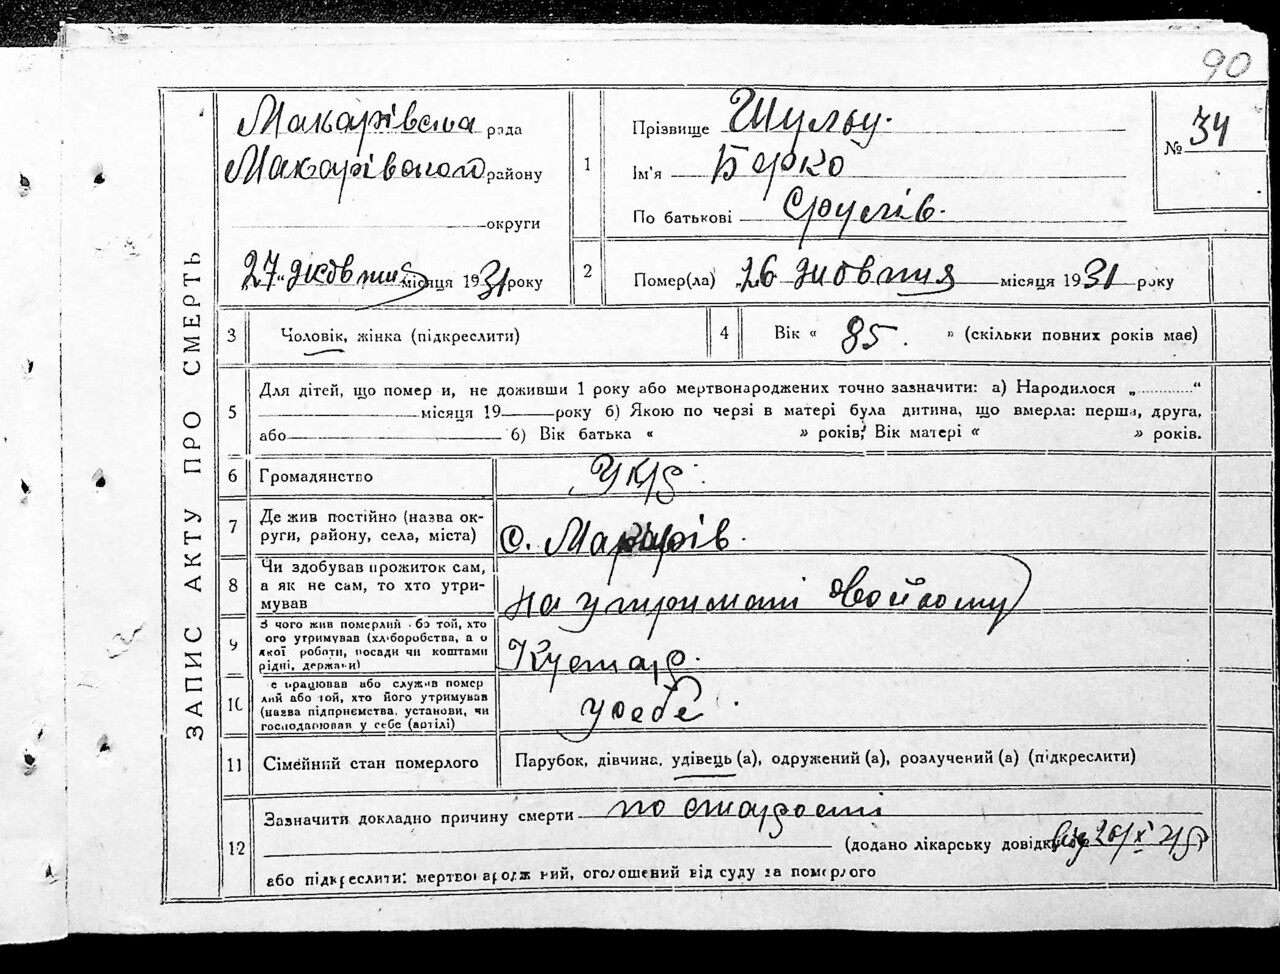 90
ЗАПИС АКТУ ПРО СМЕРТЬ
Макарівська рада
Макарівського району
округи
„27“ жовтня місяця 1931 року
1
Прізвище
Ім'я Берко
По батькові Срулів.
№ 34
2
Помер(ла) „26 жовтня місяця 1931 року
3 Чоловік, жінка (підкреслити)
4 Вік « 85. » (скільки повних років має)
5
Для дітей, що помер и, не доживши 1 року або мертвонароджених точно зазначити: а) Народилося „ “
місяця 19 року б) Якою по черзі в матері була дитина, що вмерла: перша, друга,
або б) Вік батька « » років; Вік матері « » років.
6 Громадянство Укр.
7
Де жив постійно (назва ок-
руги, району, села, міста)
с. Макарів.
8
Чи здобував прожиток сам,
а як не сам, то хто утри-
мував
на утримані
9
З чого жив померлий бо той, хто
ого утримував (хліборобства, а о
якої роботи, посади чи коштами
рідні, держави)
Кустар.
10
е працював або служив помер
лий або той, хто його утримував
(назва підприємства, установи, чи
господарював у себе (артілі)
у себе
11 Сімейний стан померлого Парубок, дівчина, удівець (а), одружений (а), розлучений (а) (підкреслити)
12
Зазначити докладно причину смерти по старості
(додано лікарську довідку від 26/X
або підкреслити: мертвонароджений, оголошений від суду за померлого